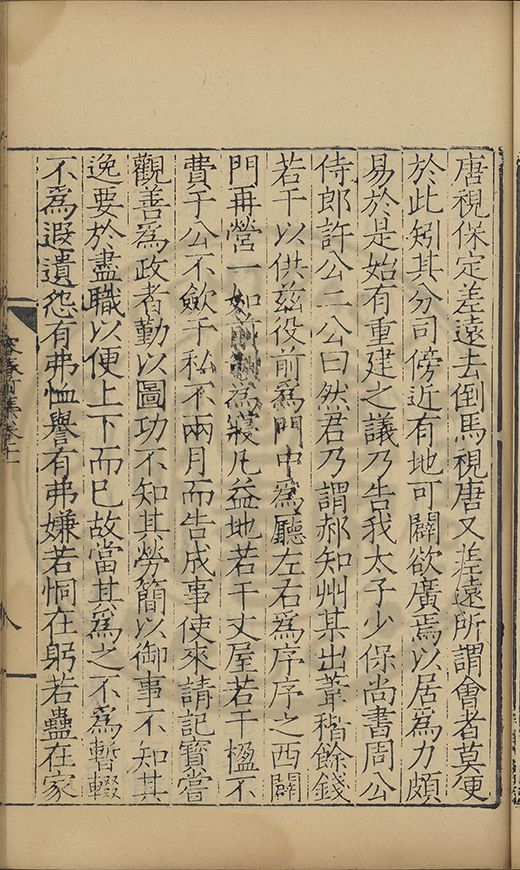 唐視保定差遠去倒馬視唐又差遠所謂會者莫便
於此矧其分司傍近有地可闢欲廣焉以居為力頗
易於是始有重建之議乃告我太子少保尚書周公
侍郎許公二公曰然君乃謂郝知州某出葦稭餘錢
若干以供茲役前為門中為廳左右為序序之西闢
門再營一如前制為寢凡益地若干丈屋若干楹不
費于公不歛于私不兩月而告成事使來請記寶嘗
觀善為政者勤以圖功不知其勞簡以御事不知其
逸要於盡職以便上下而已故當其為之不為暫輟
不為遐遺怨有弗恤譽有弗嫌若恫在躬若蠱在家
容春前集卷十一
八